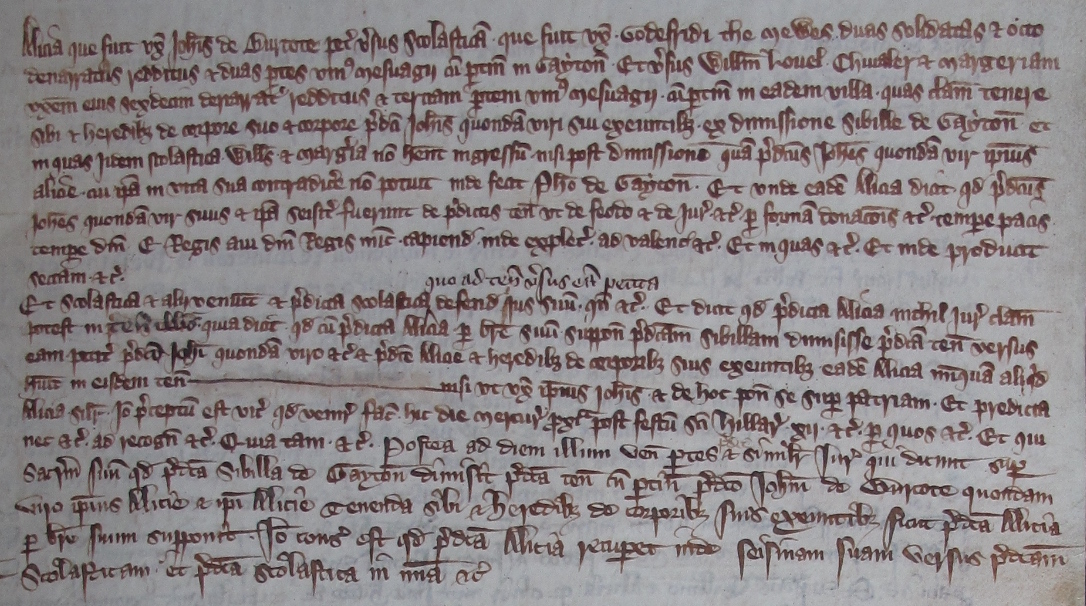 Alicia que fuit ux̄ Joh̄is de Burcote pet̄ v̄sus Scolasticā que fuit ux̄ Godefridi the Mewes duas solidatas & octo
denarratas redditus & duas p̄tes uni9 mesuagii cū ptīn in Gayton̄ Et v̄sus Will̄m Lovel Chivaler & Margeriam
ux̄em eius sexdecim denarrat̄ redditus & terciam p̄tem uni9 mesuagii cū ptīn in eadem villa quas clam̄ tenere
sibi & heredibȝ de corpore suo & corpore p̄dc̄i Joh̄is quondā viri sui exeuntibȝ ex dimissione Sibille de Gayton̄ et
in quas Iidem Scolastica Will̄s & Marḡia nō hent ingressū nisi post dimissionē quā p̄dc̄us Joh̄es quondā vir ip̄ius
Alicie cui ip̄a in vita sua contradic̄e nō potuit inde fecit Ph̄o de Gayton̄ Et unde eadē Alicia dicit qd p̄dc̄us
Joh̄es quondā vir suus & ip̄a seisit̄ fuerunt de p̄dictis ten̄ ut de feodo & de Jur̄ &c̄ p̄ formā donac̄ois &c̄ tempe pacis
tempe dn̄i E Regis avi dn̄i Regis nūc capiend̄ inde explet̄ ad valenc̄ &c̄ Et in quas &c̄ Et inde producit
sectam &c̄
quo ad ten̄ v̄sus eā petita
Et Scolastica & alii veniūt & p̄dicta Scolastica defend̄ Jus suū qn̄ &c̄ Et dicit qd p̄dicta Alicia nichil Jur̄ clam̄
potest in ten̄ illis quia dicit qd cū p̄dicta Alicia p̄ br̄e suū suppon̄ p̄dc̄am Sibillam dimisisse p̄dc̄a ten̄ versus
eam petit̄ p̄dc̄o Joh̄i quondā viro &c̄ & p̄dc̄e Alicie & heredibȝ de corporibȝ suis exeuntibȝ eadē Alicia nūquā aliqd
h̄uit in eisdem ten̄ nisi ut ux̄ ip̄ius Joh̄is & de hoc pon̄ se sup̄ patriam Et predicta
Alicia sil̄r Jō p̄ceptum est vic̄ qd venir̄ fac̄ hic die Mercur̄ px̄ post festū Sc̄i Hillar̄ xii &c̄ p̄ quos &c̄ Et qui
nec &c̄ ad recogn̄ &c̄ Quia tam &c̄ Postea ad diem illum ven̄ p̄tes & simil̄r Jur̄ qui dicunt sup̄
sacr̄m suū qd p̄dc̄a Sibilla de Gayton̄ dimisit p̄dc̄a ten̄ cū p̄tin̄ p̄dc̄o Joh̄i de Burcote quondam
viro ip̄ius Alicie & ip̄i Alicie Tenenda sibi & heredibȝ de corporibȝ suis exeuntibȝ sicut p̄dc̄a Alicia
p̄ br̄e suum supponit Jō cons̄ est qd p̄dc̄a Alicia recup̄et inde seisinam suam versus p̄dc̄am
Scolasticam et p̄dc̄a Scolastica in mīa &c̄